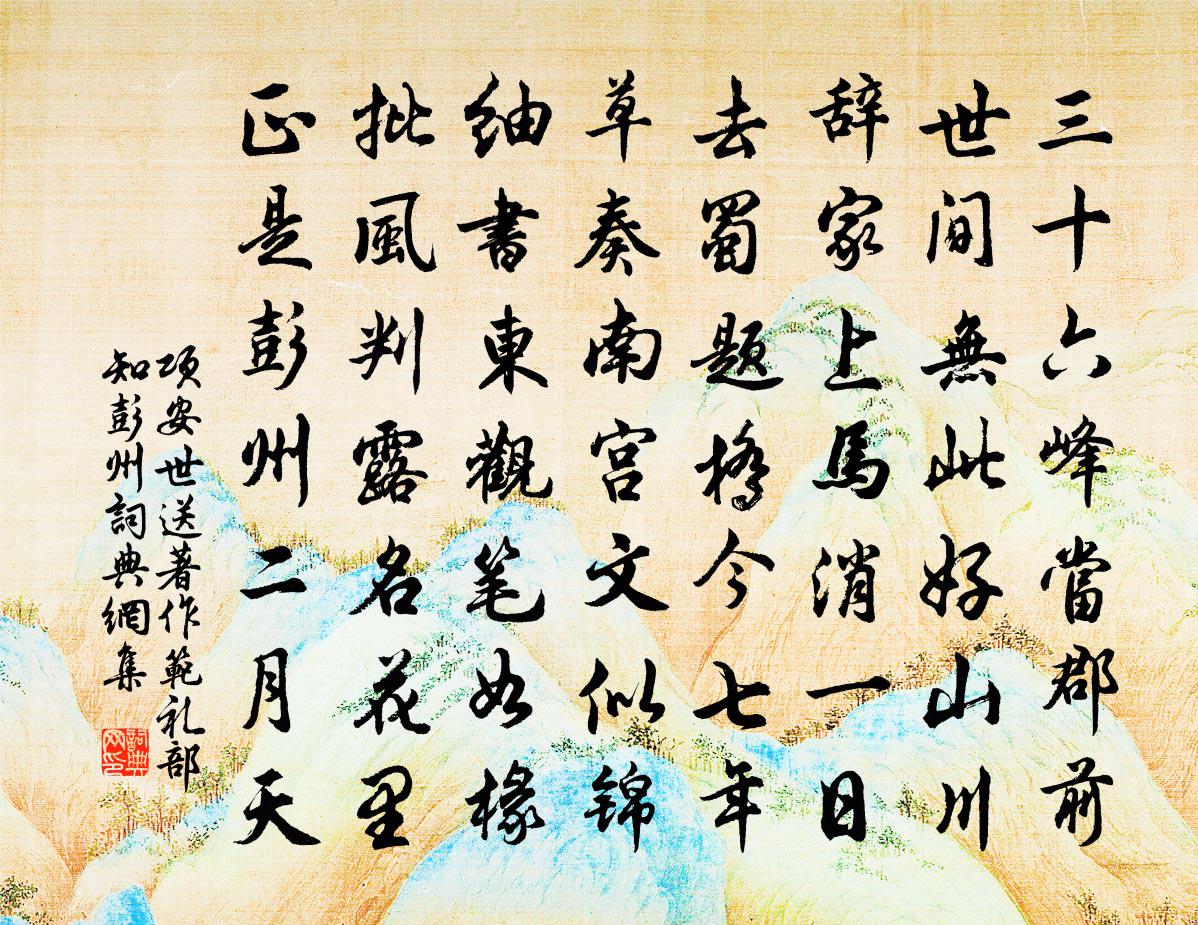 三十六峰當郡前
世間無此好山川
辞家上馬消一日
去蜀题橋今七年
草奏南宫文似锦
紬書東觀笔如椽
批風判露名花里
正是彭州二月天
项安世送著作範礼部
知彭州詞典網集
詞典網印